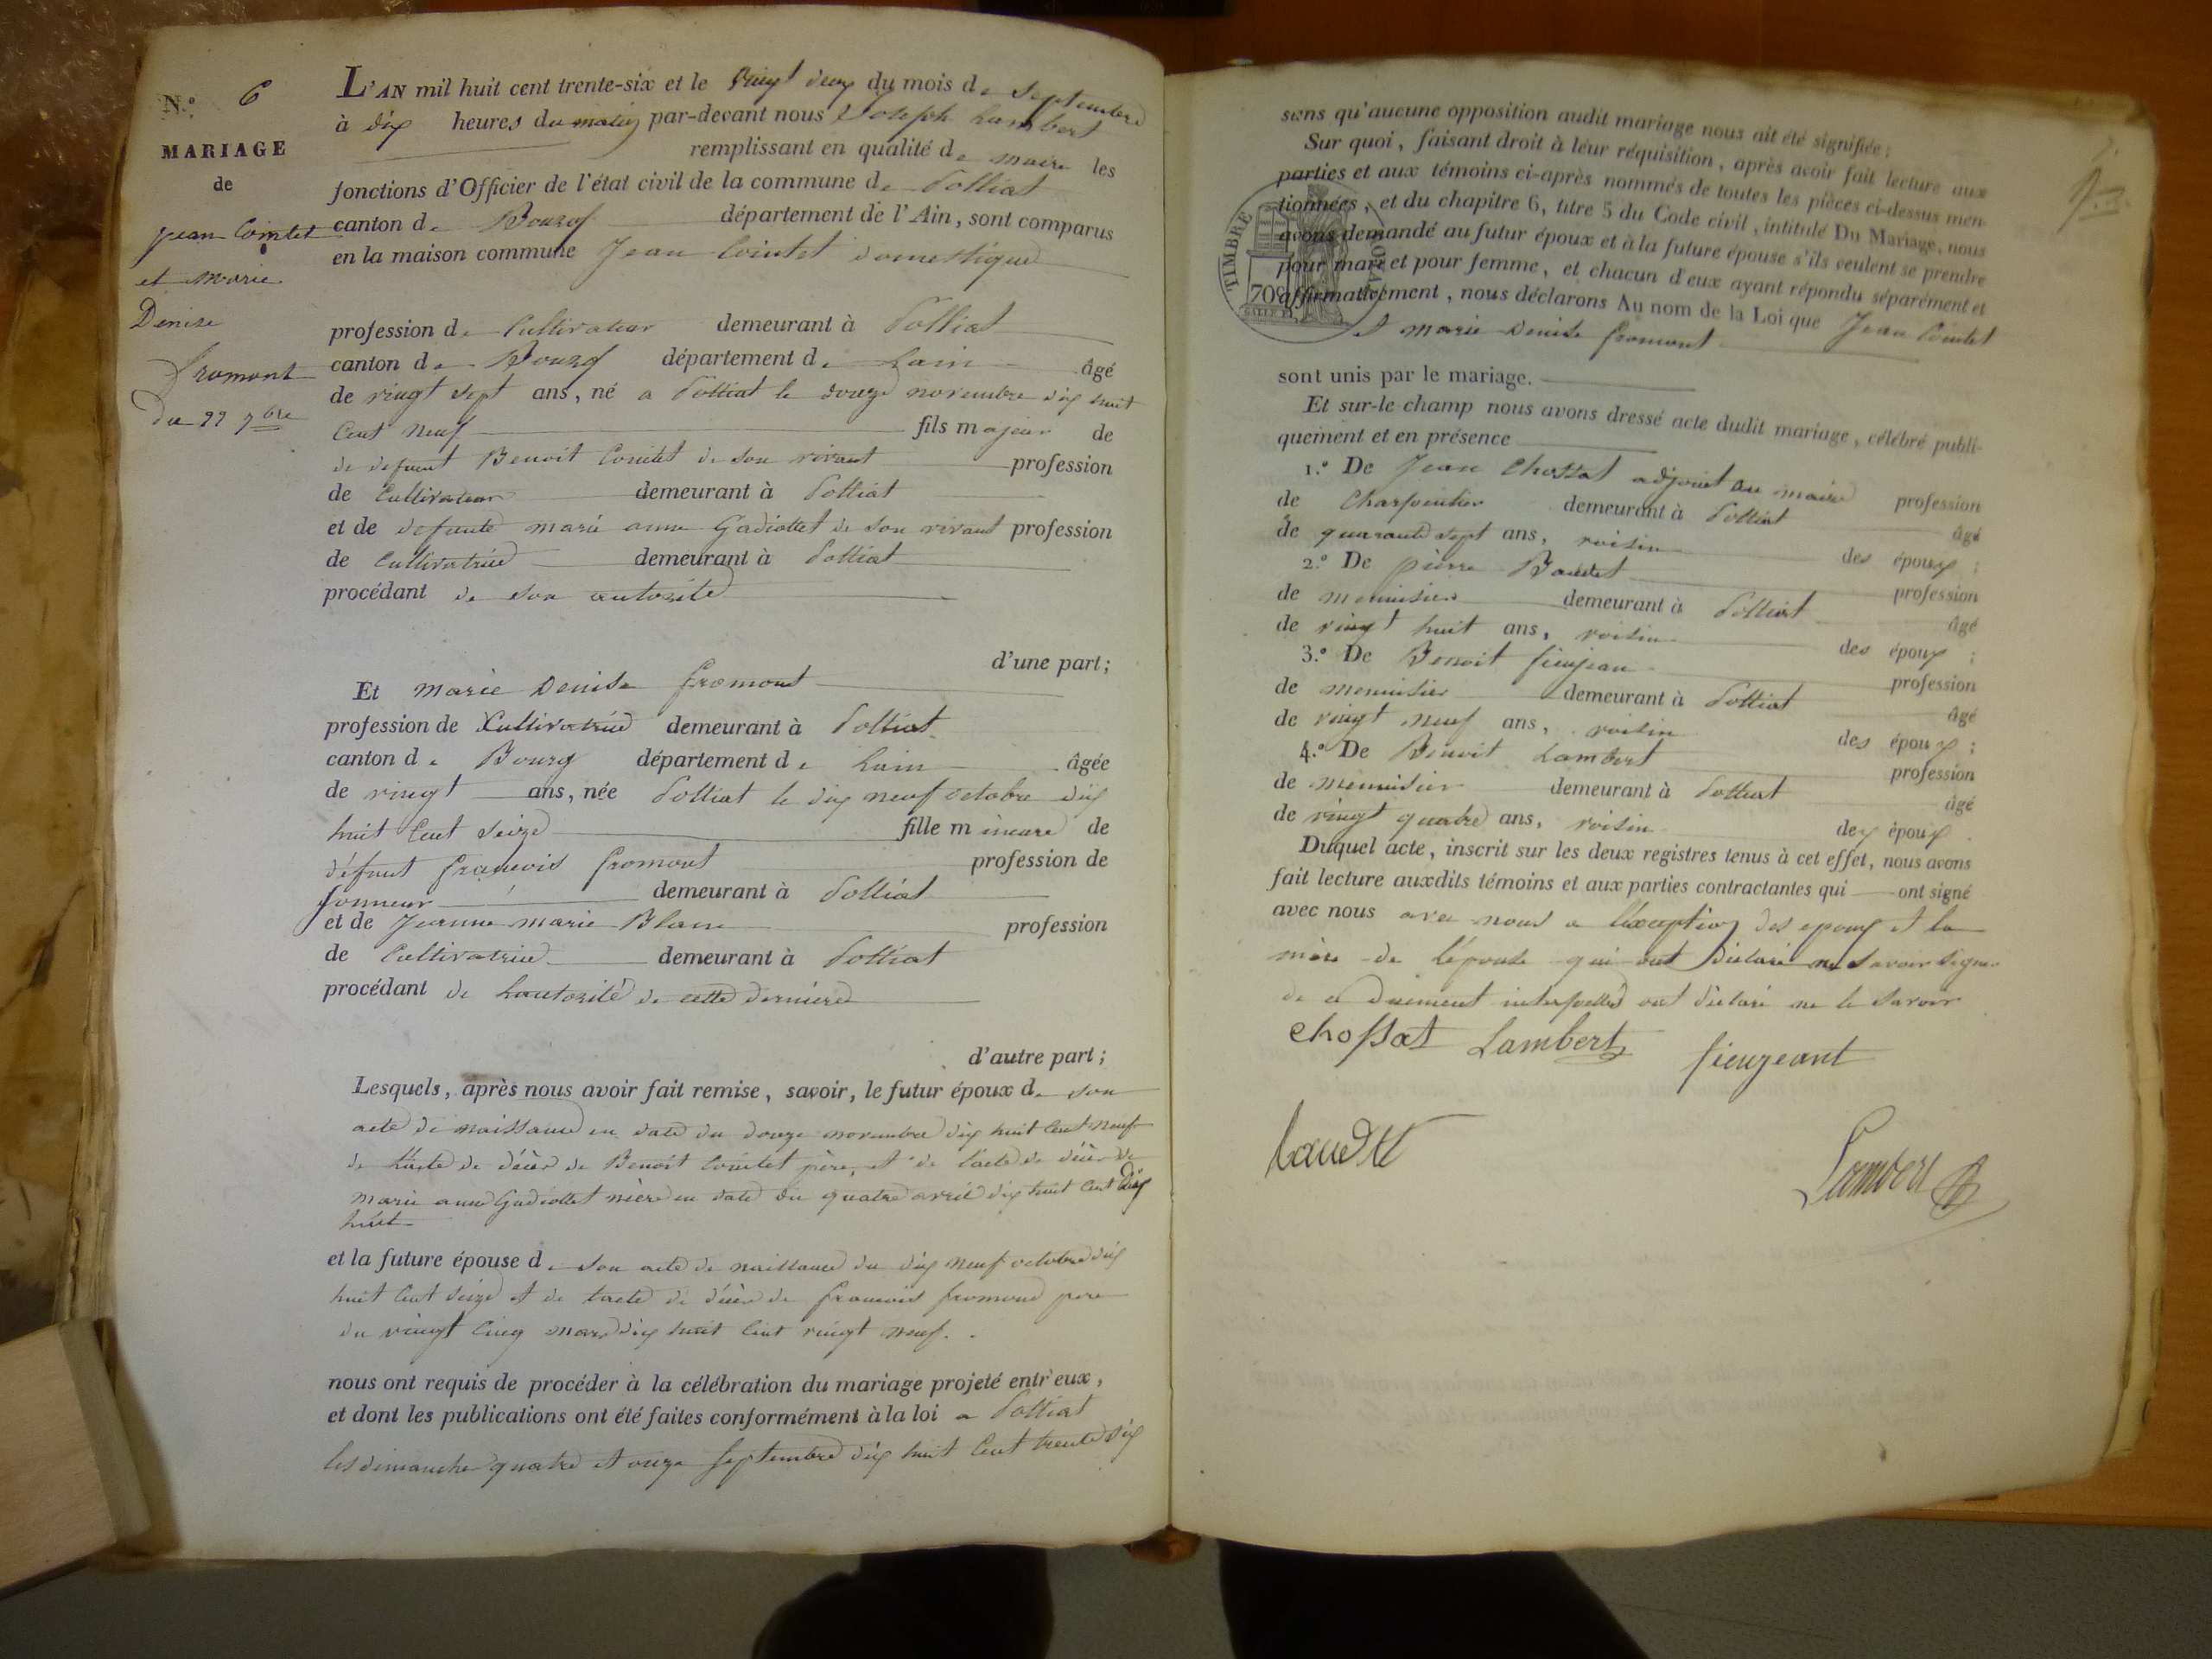 N.º 6
MARIAGE
de
jean Cointet
et marie
Denise
fromont
du 22 7bre
L'AN mil huit cent trente-six et le vingt deux du mois de septembre
à dix heures du matin par-devant nous Joseph Lambert
remplissant en qualité de maire les
fonctions d'Officier de l'état civil de la commune de Polliat
canton de Bourg département de l'Ain, sont comparus
en la maison commune Jean Cointet domestique
profession de Cultivateur demeurant à Polliat
canton de Bourg département de Lain âgé
de vingt sept ans, né a Polliat le douze novembre dix huit
Cent neuf fils majeur de
de defunt Benoit Cointet de son vivant profession
de Cultivateur demeurant à Polliat
et de defunte marie anne Gadiollet de son vivant profession
de Cultivatrice demeurant à Polliat
procédant de son autorité
d'une part;
Et marie Denise fromont
profession de Cultivatrice demeurant à Polliat
canton de Bourg département de Lain âgée
de vingt ans, née Polliat le dix neuf octobre dix
huit Cent seize fille mineure de
défunt françois fromont profession de
sonneur demeurant à Polliat
et de Jeanne marie Blanc profession
de Cultivatrice demeurant à Polliat
procédant de Lautorité de cette dernière
d'autre part;
Lesquels, après nous avoir fait remise, savoir, le futur époux de son
acte de naissance en date du douze novembre dix huit Cent neuf
de l'acte de décès de Benoit Cointet père, et de l'acte de décès de
marie anne Gadiollet mère en date du quatre avril dix huit cent dix
huit
et la future épouse de son acte de naissance du dix neuf octobre dix
huit Cent seize et de lacte de décès de françois fromond pere
du vingt Cinq mars dix huit Cent vingt neuf.
nous ont requis de procéder à la célébration du mariage projeté entr'eux,
et dont les publications ont été faites conformément à la loi a Polliat
les dimanche quatre et onze septembre dix huit Cent trente six
sans qu'aucune opposition audit mariage nous ait été signifiée;
Sur quoi, faisant droit à leur réquisition, après avoir fait lecture aux
parties et aux témoins ci-après nommés de toutes les pièces ci-dessus men-
tionnées, et du chapitre 6, titre 5 du Code civil, intitulé Du Mariage, nous
avons demandé au futur époux et à la future épouse s'ils veulent se prendre
pour mari et pour femme, et chacun d'eux ayant répondu séparément et
affirmativement, nous déclarons Au nom de la Loi que Jean Cointet
et marie Denise fromont
TIMBRE ROYAL
70c
sont unis par le mariage.
Et sur-le-champ nous avons dressé acte dudit mariage, célébré publi-
quement et en présence
1.º De Jean Chossat adjoint au maire profession
de Charpentier demeurant à Polliat âgé
de quarante sept ans, voisin des époux;
2.º De pierre Baudet profession
de menuisier demeurant à Polliat âgé
de vingt huit ans, voisin des époux;
3.º De Benoit fieujean profession
de menuisier demeurant à Polliat âgé
de vingt neuf ans, voisin des époux;
4.º De Benoit Lambert profession
de menuisier demeurant à Polliat âgé
de vingt quatre ans, voisin des époux.
Duquel acte, inscrit sur les deux registres tenus à cet effet, nous avons
fait lecture auxdits témoins et aux parties contractantes qui ont signé
avec nous avec nous a l'exception des epoux et la
mère de l'épouse qui ont déclaré ne savoir signer
de ce duement interpellés ont déclaré ne le savoir
chossat Lambert fieujeant
baudet Lambert